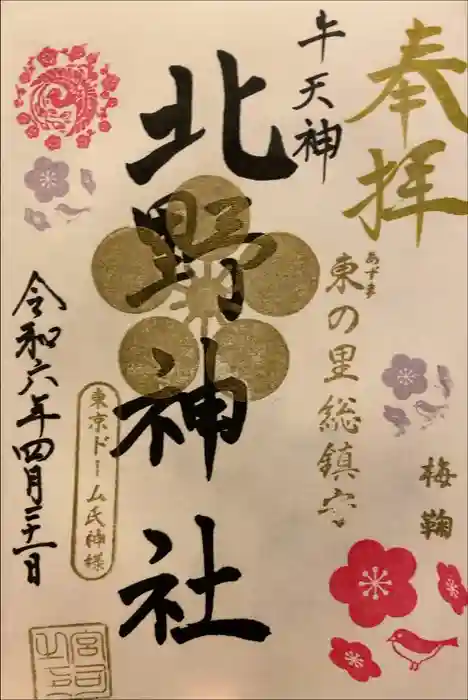 奉拝
あずま
東の里総鎮守
梅鞠
牛天神
北野神社
東京ドーム氏神様
令和六年四月二十一日
宮司
之印